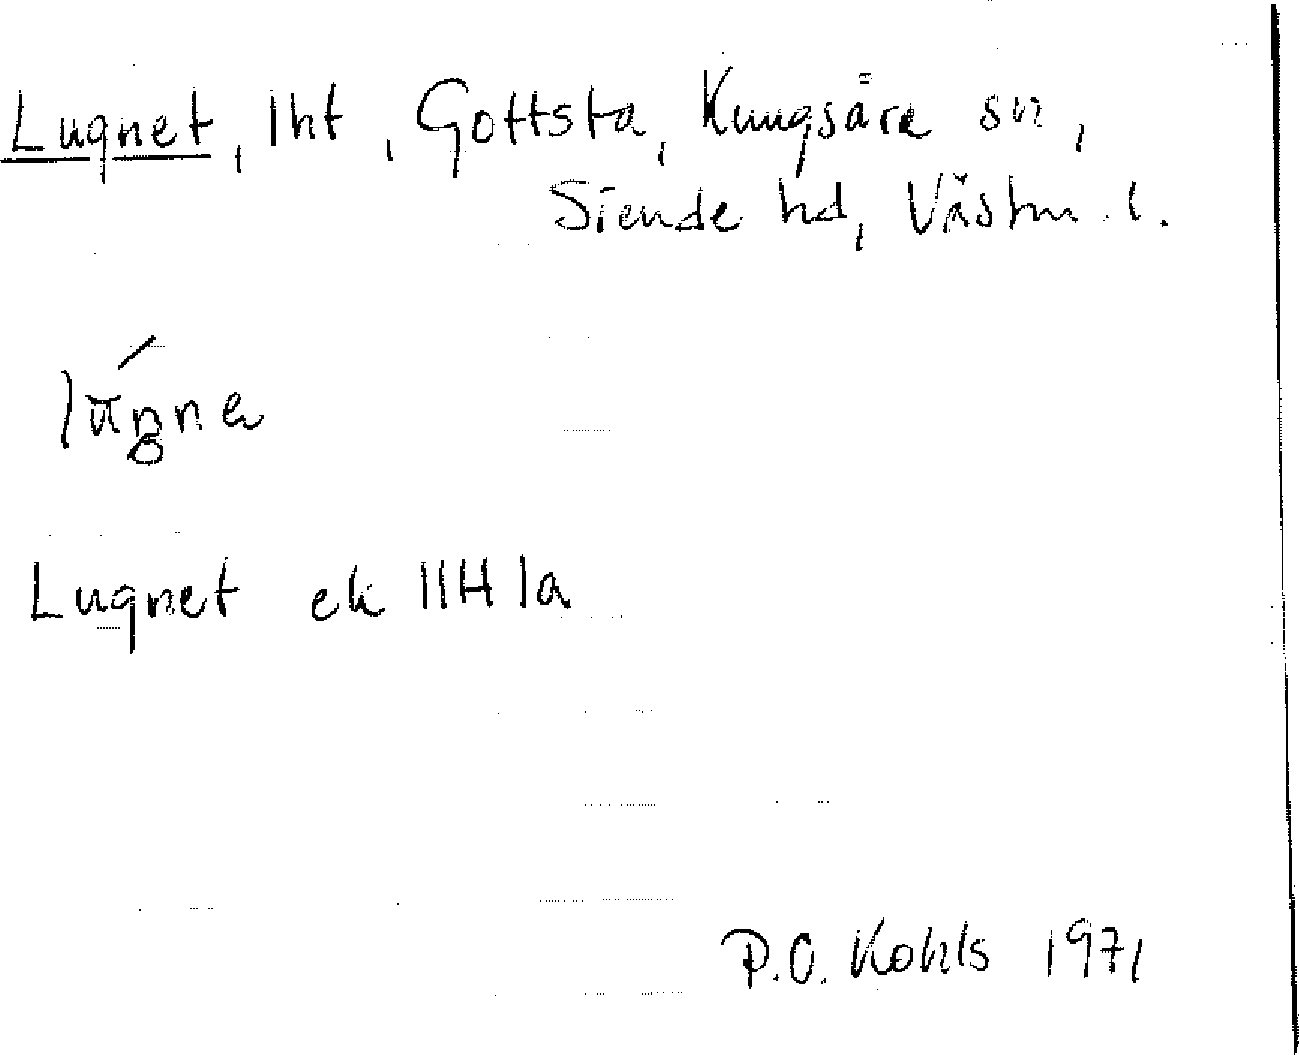 Lugnet, lht, Gottsta, Kungsåra sn,
Siende hd, Västm. l.
Lugnet ek 11H 1a
P.O. Kohls 1971